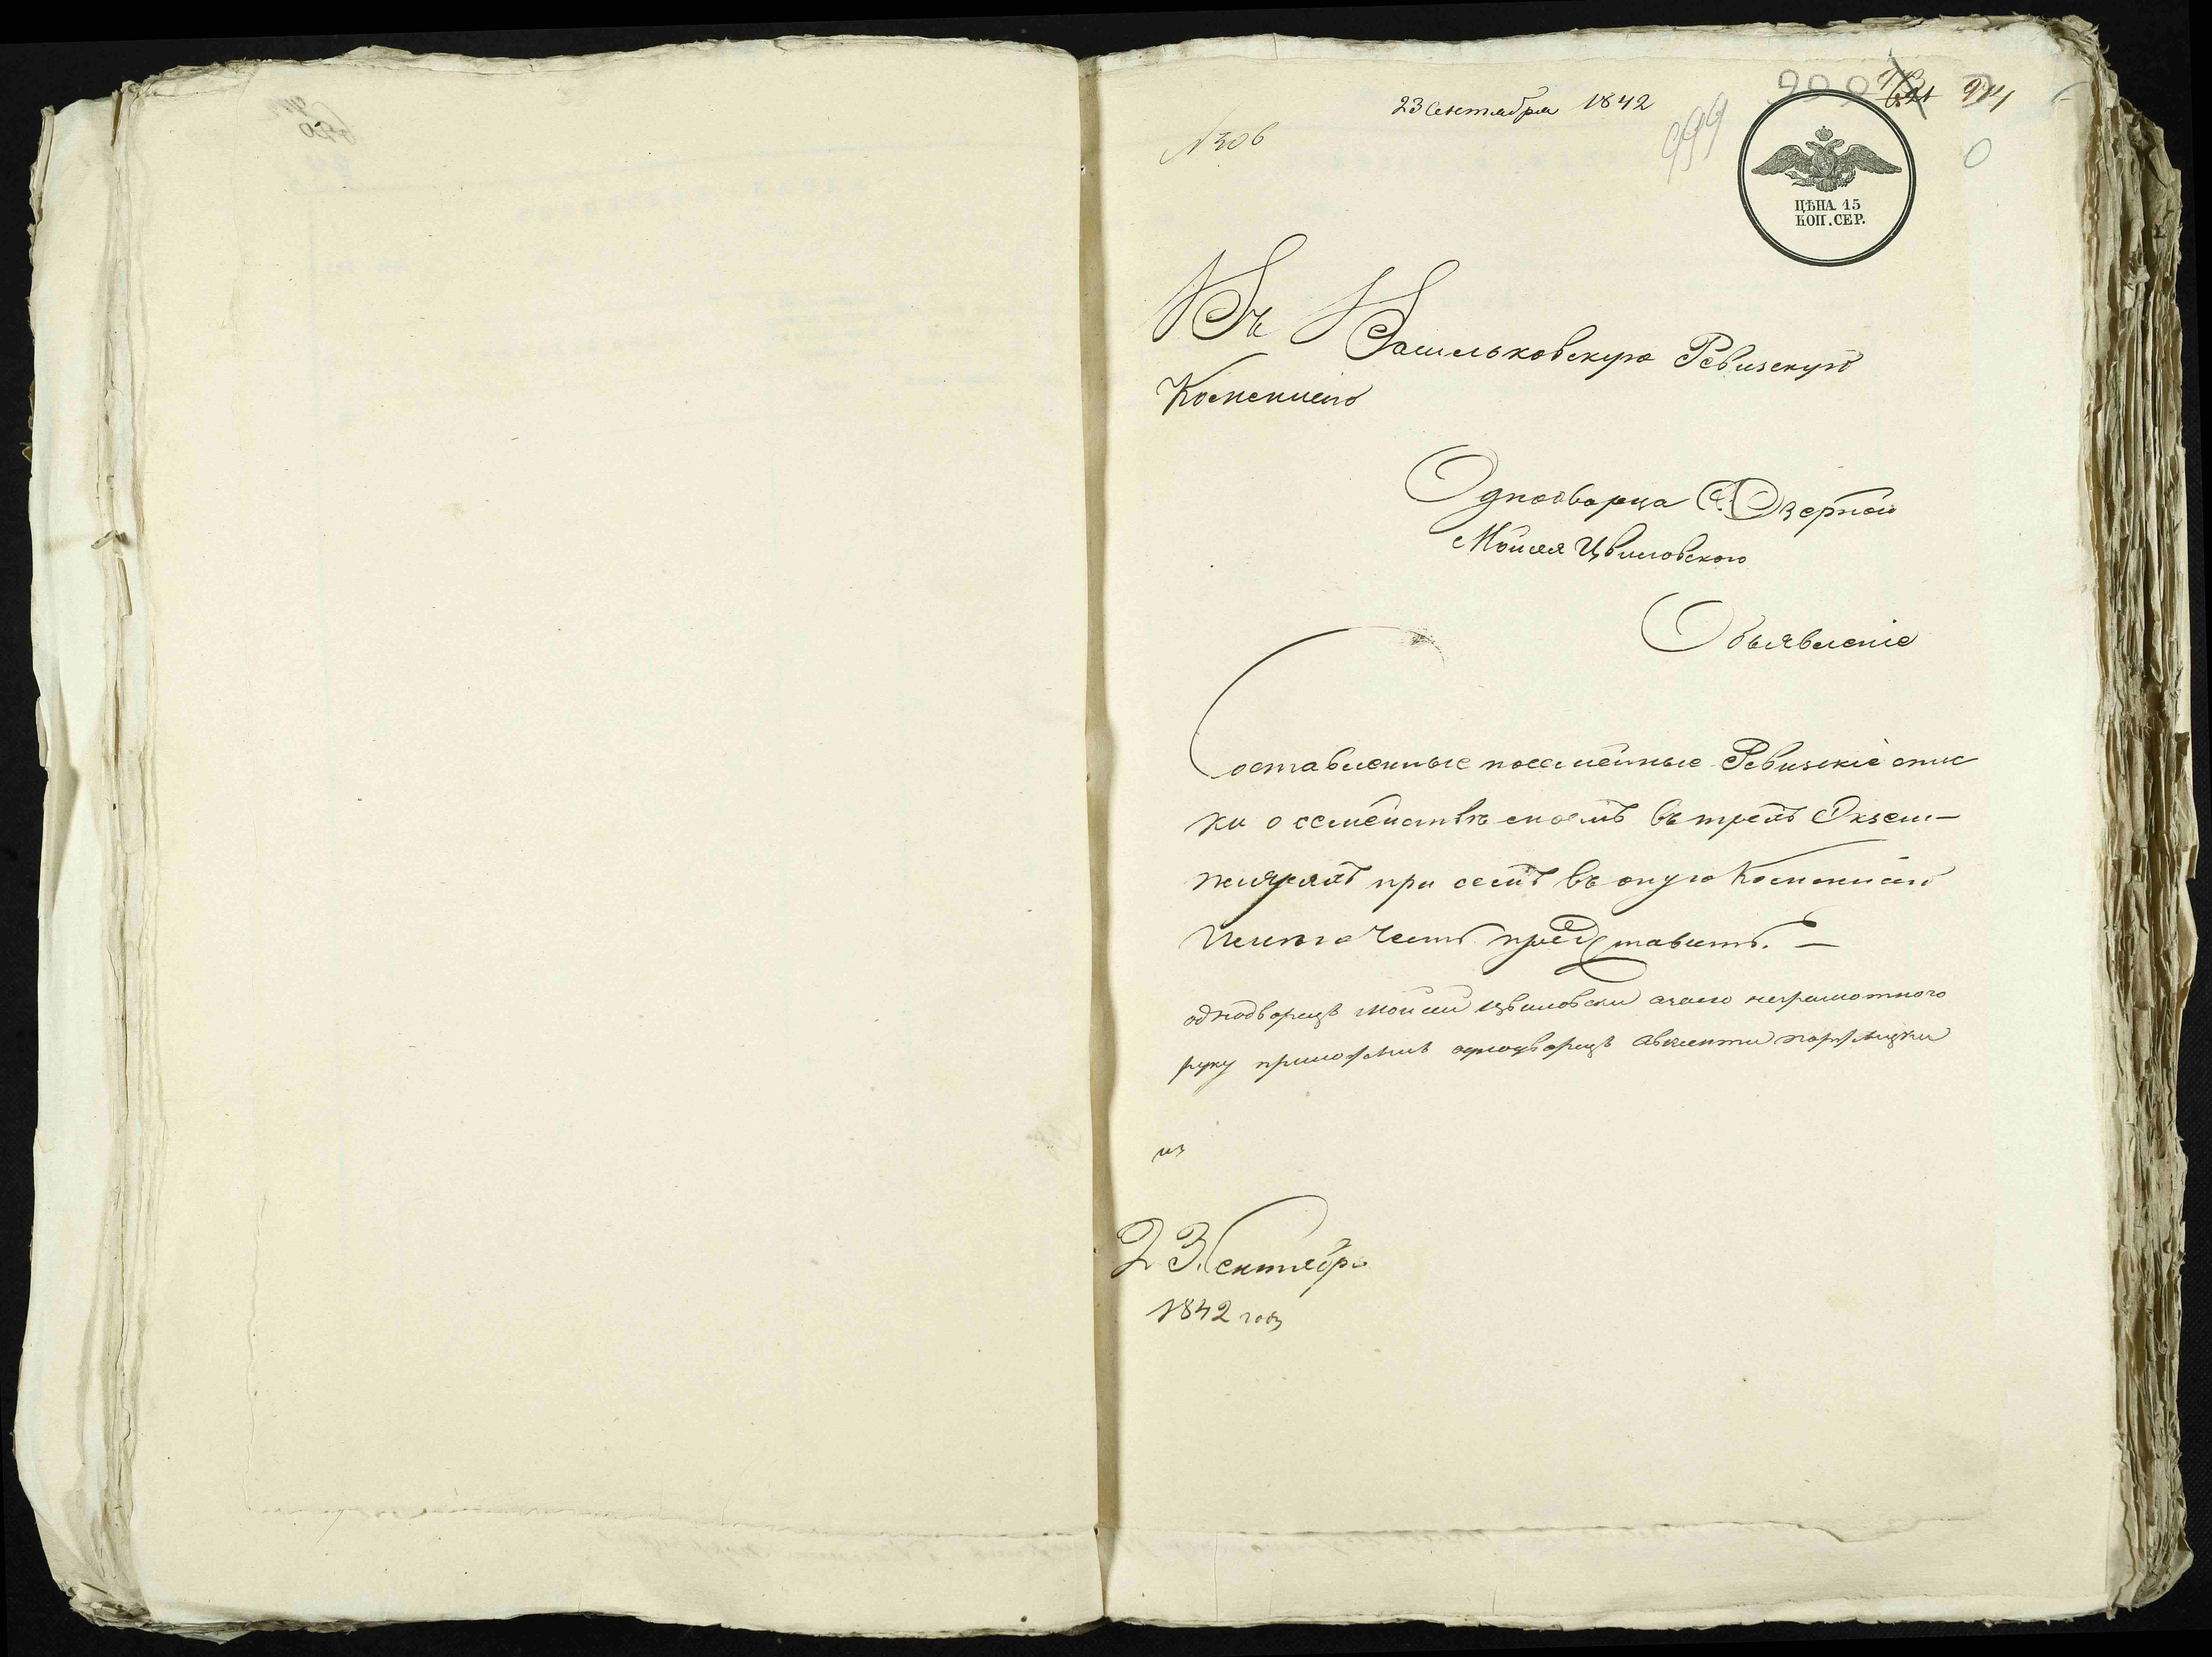 23 Сентября 1842
999
974
№306
999
0
ЦѢНА 15
КОП. СЕР.
Въ Васильковскую Ревизскую
Коммисію
Однодворца С. Озерной
Мойсея Цвиловского
Объявленіе
Составленные посемейные Ревизскіе спис
ки о семействѣ моемъ въ трехъ Экзем-
плярахъ при семъ въ оную Коммисію
Имѣю Честь представить. —
однодворецъ мойсей Цвиловски азаего неграмотного
руку приложилъ однодворецъ
23. Сентября
1842 года